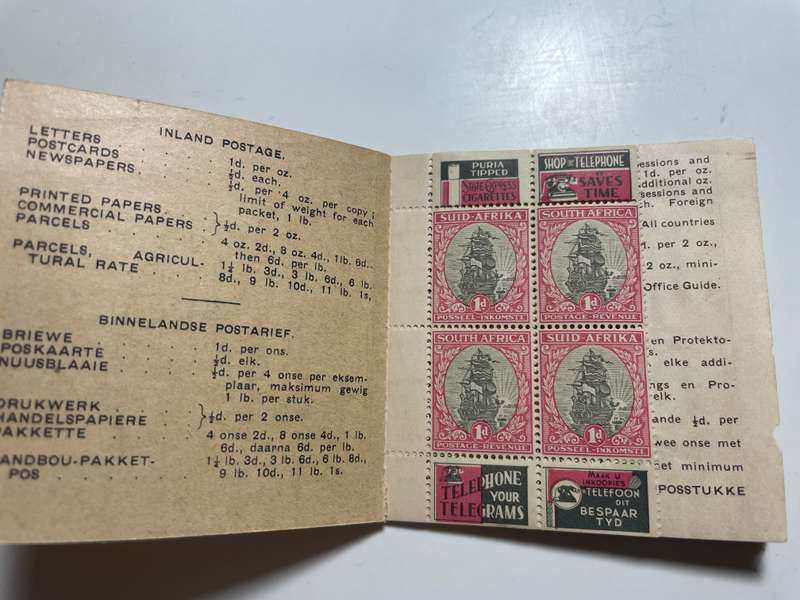 INLAND POSTAGE.
LETTERS . . . . 1d. per oz.
POSTCARDS . . . ½d. each.
NEWSPAPERS . . . ½d. per 4 oz. per copy;
limit of weight for each
packet, 1 lb.
PRINTED PAPERS . .
COMMERCIAL PAPERS } ½d. per 2 oz.
PARCELS . . . 4 oz. 2d., 8 oz. 4d., 1 lb. 6d.,
then 6d. per lb.
PARCELS, AGRICUL- 1½ lb. 3d., 3 lb. 6d., 6 lb.
TURAL RATE . . . 8d., 9 lb. 10d., 11 lb. 1s,
BINNELANDSE POSTARIEF.
BRIEWE . . . 1d. per ons.
POSKAARTE . . . ½d. elk.
NUUSBLAAIE . . . ½d. per 4 onse per eksem-
plaar, maksimum gewig
1 lb. per stuk.
DRUKWERK . . .
HANDELSPAPIERE } ½d. per 2 onse.
PAKKETTE . . . 4 onse 2d., 8 onse 4d., 1 lb.
6d., daarna 6d. per lb.
ANDBOU-PAKKET- 1½ lb. 3d., 3 lb. 6d., 6 lb. 8d.,
POS . . . 9 lb. 10d., 11 lb. 1s.
PURIA
TIPPED
STATE EXPRESS
CIGARETTES
SHOP BY TELEPHONE
SAVES
TIME
SUID-AFRIKA
1d
POSSEEL-INKOMSTE
SOUTH AFRICA
1d
POSTAGE-REVENUE
SOUTH AFRICA
1d
POSTAGE-REVENUE
SUID-AFRIKA
1d
POSSEEL-INKOMSTE
TELEPHONE
YOUR
TELEGRAMS
MAAK U
INKOOPIES
PER TELEFOON
DIT
BESPAAR
TYD
sessions and
1d. per oz.
additional oz.
sessions and
ch. Foreign
All countries
d. per 2 oz.,
2 oz., mini-
Office Guide.
en Protekto-
s.
elke addi-
ngs en Pro-
elk.
ande ½d. per
wee onse met
et minimum
POSSTUKKE